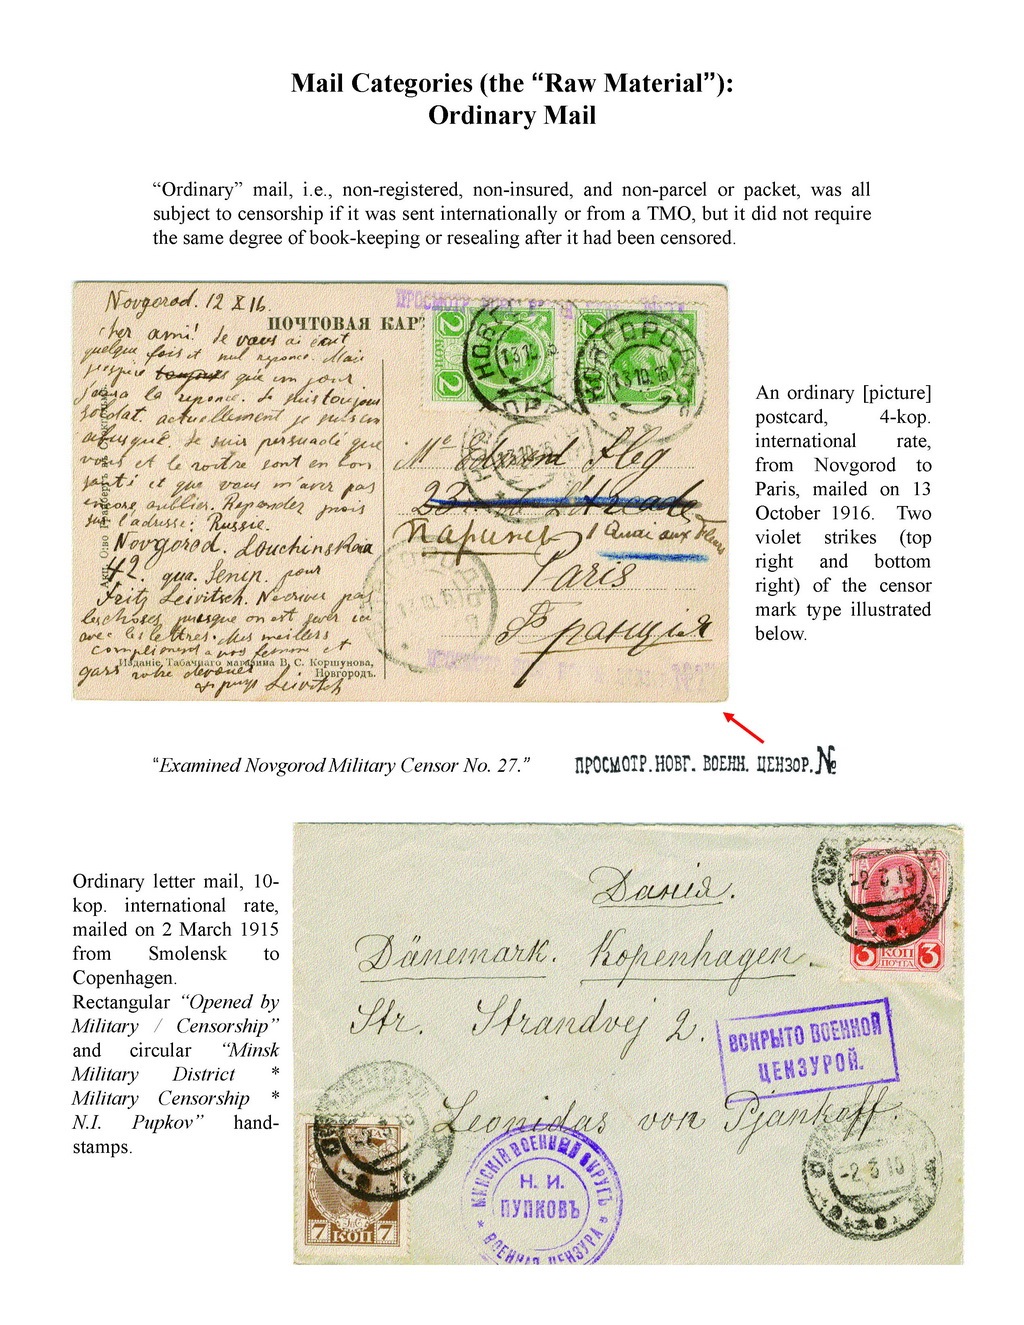 Mail Categories (the “Raw Material”):
Ordinary Mail
“Ordinary” mail, i.e., non-registered, non-insured, and non-parcel or packet, was all
subject to censorship if it was sent internationally or from a TMO, but it did not require
the same degree of book-keeping or resealing after it had been censored.
Novgorod. 12 X 16.
ПОЧТОВАЯ КАР
cher ami! Je vous ai écrit
quelque fois et nul reponce. Mais
j'espère que un jour
j'aura la reponce. Je suis toujour
soldat. actuellement je suis en
Je suis persuadé que
vous et le votre sont en bon
santé et que vous m'aver pas
encore oublier. Reponder
sur l'adresse: Russie.
Novgorod. Louchinskaia
42. qua. Senin. pour
Fritz Leivitsch. N'ecriver pas
les choses
avec les lettres. Mes meillers
compliments a vos femme et
gars votre devoué
Leivitch
Изданіе Табачнаго магазина В. С. Коршунова,
Новгородъ.
ПРОСМОТР
2
2
НОВГОРОДЪ
13 10 16
Me Edmond Fleg
23
Парижъ 1 Quai aux Fleurs
Paris
Франція
An ordinary [picture]
postcard, 4-kop.
international rate,
from Novgorod to
Paris, mailed on 13
October 1916. Two
violet strikes (top
right and bottom
right) of the censor
mark type illustrated
below.
“Examined Novgorod Military Censor No. 27.”
ПРОСМОТР. НОВГ. ВОЕНН. ЦЕНЗОР. №
Ordinary letter mail, 10-
kop. international rate,
mailed on 2 March 1915
from Smolensk to
Copenhagen.
Rectangular “Opened by
Military / Censorship”
and circular “Minsk
Military District *
Military Censorship *
N.I. Pupkov” hand-
stamps.
Данія.
Dänemark. Kopenhagen.
Str. Strandvej 2.
Leonidas von Pjankoff.
3 КОП 3
ПОЧТА
-2 3 15
ВСКРЫТО ВОЕННОЙ
ЦЕНЗУРОЙ.
7 КОП 7
МИНСКІЙ ВОЕННЫЙ ОКРУГЪ
Н. И.
ПУПКОВЪ
* ВОЕННАЯ ЦЕНЗУРА *
-2 3 15